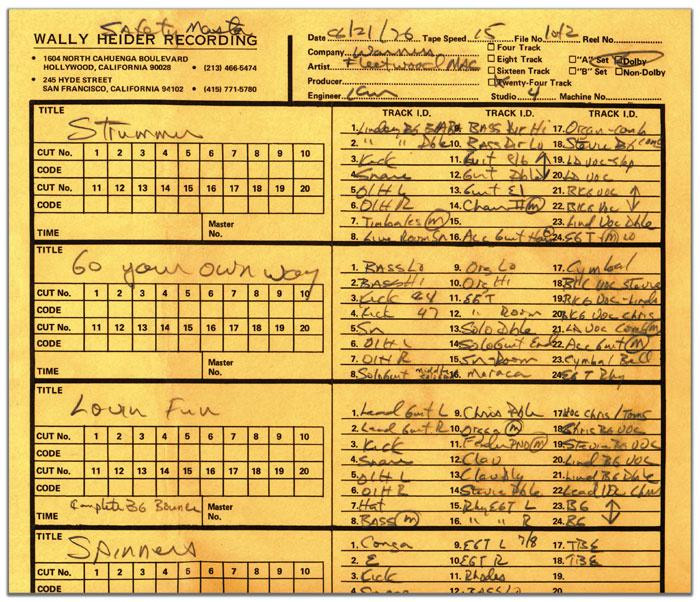 Safety Master
WALLY HEIDER RECORDING
• 1604 NORTH CAHUENGA BOULEVARD
HOLLYWOOD, CALIFORNIA 90028 • (213) 466-5474
• 245 HYDE STREET
SAN FRANCISCO, CALIFORNIA 94102 • (415) 771-5780
Date 6/21/76 Tape Speed 15 File No. 1 of 2 Reel No.
Company Warners □ Four Track
Artist Fleetwood Mac □ Eight Track □ "A" Set Dolby
Producer □ Sixteen Track □ "B" Set □ Non-Dolby
Twenty-Four Track
Engineer Ken Studio 4 Machine No.
TITLE
Strummer
CUT No. 1 2 3 4 5 6 7 8 9 10
CODE
CUT No. 11 12 13 14 15 16 17 18 19 20
CODE
TIME Master No.
TRACK I.D. TRACK I.D. TRACK I.D.
1. Lindsey BG 9. Bass Dir Hi 17. Organ-comb
2. " " Dble 10. Bass Dir Lo 18. Stevie BG comb
3. Kick 11. Guit 19. LD VOC
4. Snare 12. Guit Dble 20. LD VOC
5. O/H L 13. Guit 21. BKG VOC
6. O/H R 14. (M) 22. BKG VOC
7. Timbales (M) 15. 23. Lind Voc Dble
8. Live Room Sn 16. Acc Guit 24. EGT (M) LO
TITLE
Go your own way
CUT No. 1 2 3 4 5 6 7 8 9 10
CODE
CUT No. 11 12 13 14 15 16 17 18 19 20
CODE
TIME Master No.
1. BASS Lo 9. Org Lo 17. Cymbal
2. BASS Hi 10. Org Hi 18. BKG VOC Stevie
3. Kick 11. EGT 19. BKG VOC-Linds
4. Kick 47 12. " Room 20. BKG VOC Chris
5. Sn 13. Solo Dble 21. LD VOC Comb(M)
6. O/H L 14. Solo Guit End 22. Acc Guit (M)
7. O/H R 15. Sn-Room 23. Cymbal Bell
8. Solo Guit middle 16. Maraca 24. EGT Rhy
TITLE
Lovin Fun
CUT No. 1 2 3 4 5 6 7 8 9 10
CODE
CUT No. 11 12 13 14 15 16 17 18 19 20
CODE
TIME Complete BG Bounce Master No.
1. Lead Guit L 9. Chris Dble 17. Voc Chris / Toms
2. Lead Guit R 10. Organ (M) 18. Chris BG VOC
3. Kick 11. Fender PNO (M) 19. Stevie BG VOC
4. Snare 12. Clav 20. Lind BG VOC
5. O/H L 13. 21. Lind BG Dble
6. O/H R 14. Stevie Dble 22. Lead Voc Chris
7. Hat 15. Rhy EGT L 23. BG
8. BASS (M) 16. " " R 24. BG
TITLE
Spinners
CUT No. 1 2 3 4 5 6 7 8 9 10
CODE
1. Conga 9. EGT L 7/8 17. TBE
2. E 10. EGT R 18. TBE
3. Kick 11. Rhodes 19.
4. Snare 12. BASS LO 20.